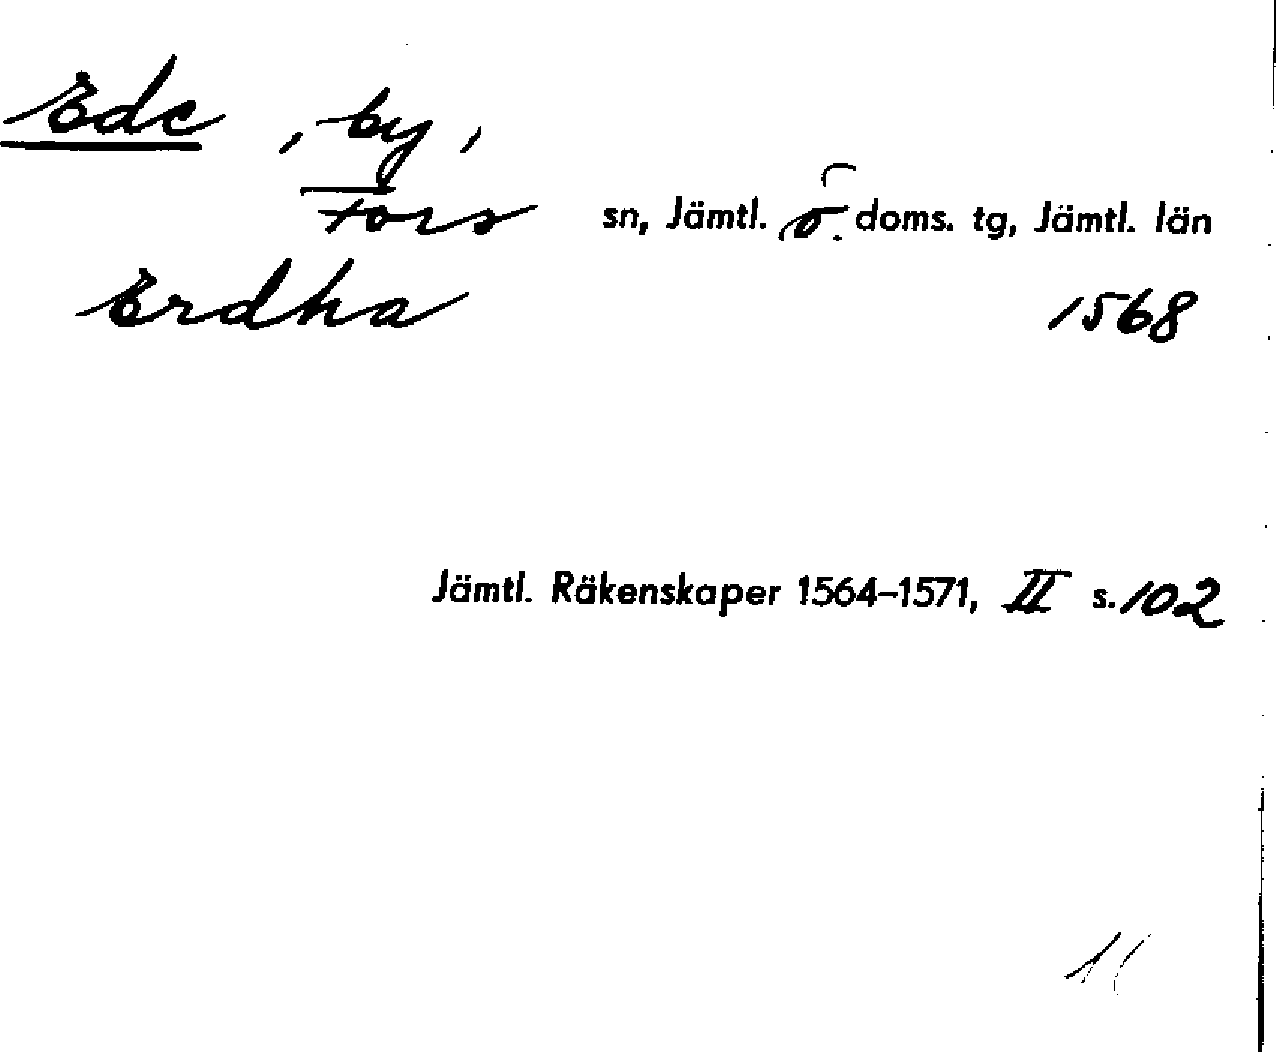 Ede, by,
Fors sn, Jämtl. ö. doms. tg, Jämtl. län
Erdha 1568
Jämtl. Räkenskaper 1564–1571, II s. 102